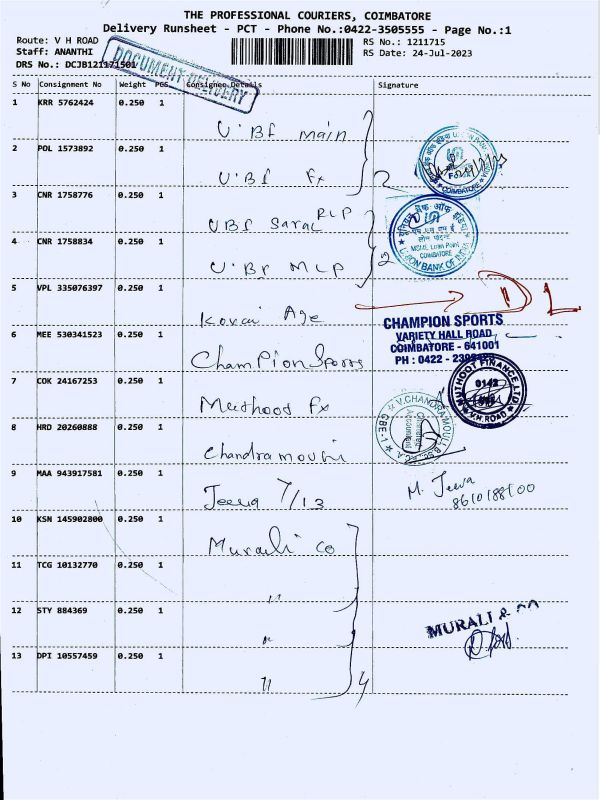 THE PROFESSIONAL COURIERS, COIMBATORE
Delivery Runsheet - PCT - Phone No.:0422-3505555 - Page No.:1
Route: V H ROAD
RS No.: 1211715
Staff: ANANTHI
RS Date: 24-Jul-2023
DRS No.: DCJB121171501
DOCUMENT DELIVERY
S No Consignment No Weight PCS Consignee Details Signature
1 KRR 5762424 0.250 1
U.BI main
2 POL 1573892 0.250 1
U.BI Fx
2
COIMBATORE
3 CNR 1758776 0.250 1
UBI Saral RLP
4 CNR 1758834 0.250 1
U.BI MLP
2
यूनियन बैंक ऑफ इंडिया
MSME Loan Point
COIMBATORE
UNION BANK OF INDIA
5 VPL 335076397 0.250 1
Kovai Age
DL
6 MEE 530341523 0.250 1
Champion Sports
CHAMPION SPORTS
VARIETY HALL ROAD
COIMBATORE - 641001
PH : 0422 -
7 COK 24167253 0.250 1
Muthoot Fx
MUTHOOT FINANCE LTD
0142
V.H ROAD
8 HRD 20260888 0.250 1
Chandramouli
V.CHANDRAMOULI, B.SC., F.C.A.
Chartered
Accountant
CBE-1
9 MAA 943917581 0.250 1
Jeeva 7/13
M. Jeeva
8610188500
10 KSN 145902800 0.250 1
Murali co
11 TCG 10132770 0.250 1
"
12 STY 884369 0.250 1
"
MURALI & CO
13 DPI 10557459 0.250 1
"
4